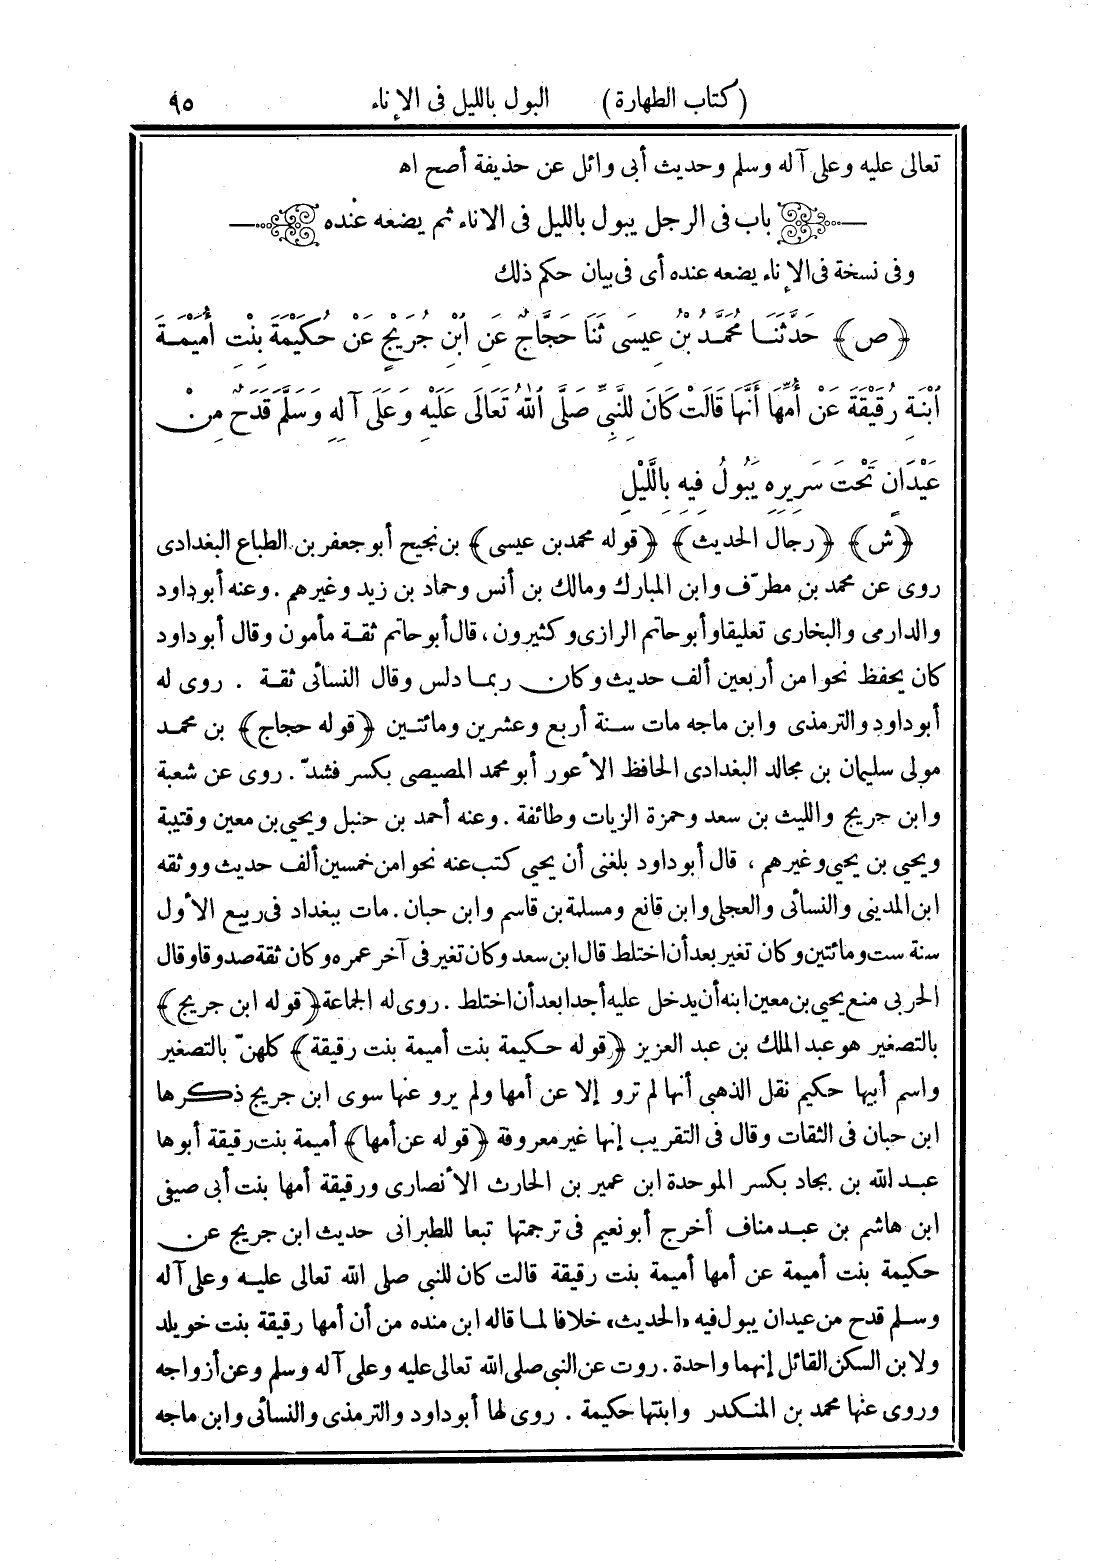 (كتاب الطهارة) البول بالليل فى الإناء ٩٥
تعالى عليه وعلى آله وسلم وحديث أبى وائل عن حذيفة أصح اه
باب فى الرجل يبول بالليل فى الاناء ثم يضعه عنده
وفى نسخة فى الإناء يضعه عنده أى فى بيان حكم ذلك
﴿ص﴾ حَدَّثَنَا مُحَمَّدُ بْنُ عِيسَى ثَنَا حَجَّاجٌ عَنِ ابْنِ جُرَيْجٍ عَنْ حُكَيْمَةَ بِنْتِ أُمَيْمَةَ
ابْنَةِ رُقَيْقَةَ عَنْ أُمِّهَا أَنَّهَا قَالَتْ كَانَ لِلنَّبِيِّ صَلَّى اللهُ تَعَالَى عَلَيْهِ وَعَلَى آلِهِ وَسَلَّمَ قَدَحٌ مِنْ
عَيْدَانٍ تَحْتَ سَرِيرِهِ يَبُولُ فِيهِ بِاللَّيْلِ
﴿ش﴾ ﴿رجال الحديث﴾ ﴿قوله محمد بن عيسى﴾ بن نجيح أبو جعفر بن الطباع البغدادى
روى عن محمد بن مطرّف وابن المبارك ومالك بن أنس وحماد بن زيد وغيرهم . وعنه أبوداود
والدارمى والبخارى تعليقا وأبوحاتم الرازى وكثيرون ، قال أبوحاتم ثقة مأمون وقال أبوداود
كان يحفظ نحوا من أربعين ألف حديث وكان ربما دلس وقال النسائى ثقة . روى له
أبوداود والترمذى وابن ماجه مات سنة أربع وعشرين ومائتين ﴿قوله حجاج﴾ بن محمد
مولى سليمان بن مجالد البغدادى الحافظ الأعور أبو محمد المصيصى بكسر فشدّ . روى عن شعبة
وابن جريج والليث بن سعد وحمزة الزيات وطائفة . وعنه أحمد بن حنبل ويحيى بن معين وقتيبة
ويحيى بن يحيى وغيرهم ، قال أبوداود بلغنى أن يحيى كتب عنه نحوا من خمسين ألف حديث ووثقه
ابن المدينى والنسائى والعجلى وابن قانع ومسلمة بن قاسم وابن حبان . مات ببغداد فى ربيع الأول
سنة ست ومائتين وكان تغير بعد أن اختلط قال ابن سعد وكان تغير فى آخر عمره وكان ثقة صدوقا وقال
الحربى منع يحيى بن معين ابنه أن يدخل عليه أحدا بعد أن اختلط . روى له الجماعة ﴿قوله ابن جريج﴾
بالتصغير هو عبد الملك بن عبد العزيز ﴿قوله حكيمة بنت أميمة بنت رقيقة﴾ كلهنّ بالتصغير
واسم أبيها حكيم نقل الذهبى أنها لم ترو إلا عن أمها ولم يرو عنها سوى ابن جريج ذكرها
ابن حبان فى الثقات وقال فى التقريب إنها غير معروفة ﴿قوله عن أمها﴾ أميمة بنت رقيقة أبوها
عبد الله بن بجاد بكسر الموحدة ابن عمير بن الحارث الأنصارى ورقيقة أمها بنت أبى صيفى
ابن هاشم بن عبد مناف أخرج أبونعيم فى ترجمتها تبعا للطبرانى حديث ابن جريج عن
حكيمة بنت أميمة عن أمها أميمة بنت رقيقة قالت كان للنبى صلى الله تعالى عليه وعلى آله
وسلم قدح من عيدان يبول فيه «الحديث» خلافا لما قاله ابن منده من أن أمها رقيقة بنت خويلد
ولابن السكن القائل إنهما واحدة . روت عن النبى صلى الله تعالى عليه وعلى آله وسلم وعن أزواجه
وروى عنها محمد بن المنكدر وابنتها حكيمة . روى لها أبوداود والترمذى والنسائى وابن ماجه